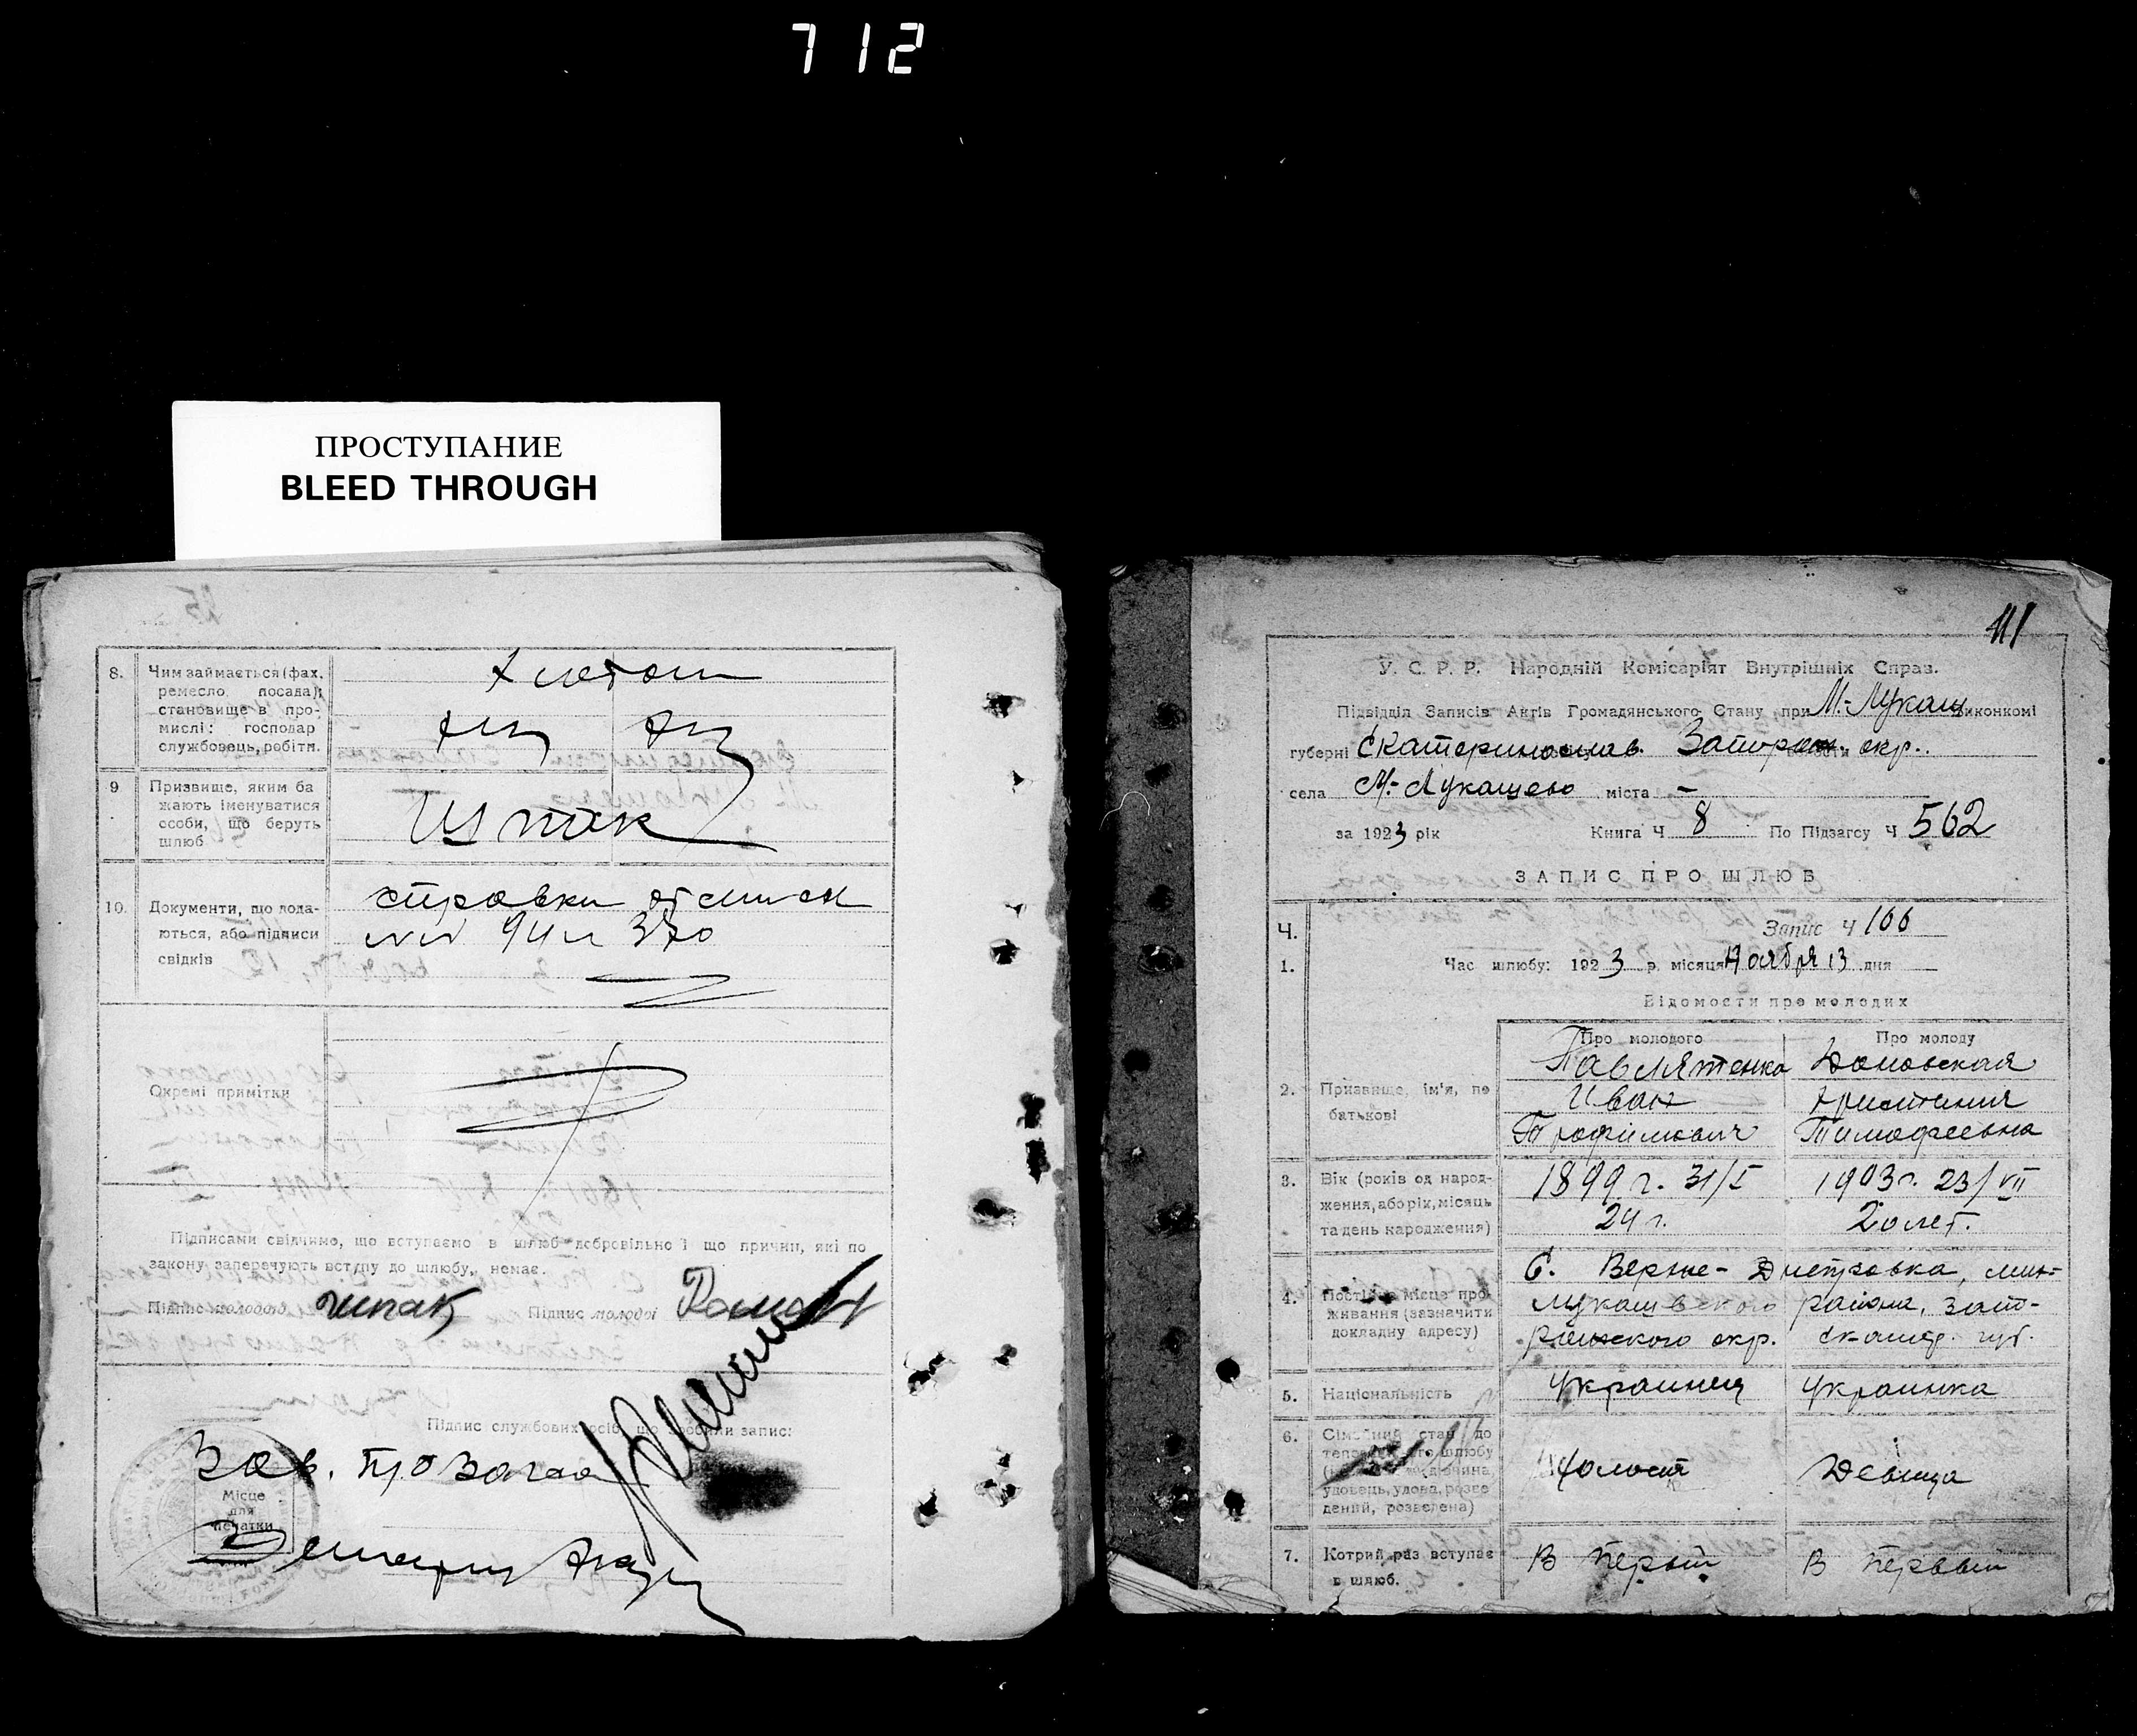 712
ПРОСТУПАНИЕ
BLEED THROUGH
8. Чим займається (фах,
ремесло, посада);
становище в про-
мислі: господар
службовець, робітн.
9 Призвище, яким ба
жають іменуватися
особи, що беруть
шлюб
Шпак
10. Документи, що пода-
ються, або підписи
свідків
справки
94 и 370
Окремі примітки
Підписами свідчимо, що вступаємо в шлюб добровільно і що причин, які по
закону заперечують вступу до шлюбу, немає.
Підпис молодого Шпак Підпис молодої
Підпис службових осіб, що зробили запис:
Зав.
Місце
для
печатки
111
У. С. Р. Р. Народній Комісаріят Внутрішніх Справ.
Підвідділ Записів Актів Громадянського Стану при М.-Лукаш виконкомі
губерні Екатеринослав. Запорож. окр.
села М.-Лукашево міста –
за 1923 рік Книга Ч 8 По Підзагсу Ч 562
ЗАПИС ПРО ШЛЮБ
Ч. Запис Ч 166
1. Час шлюбу: 1923 р. місяця Ноября 13 дня
Відомости про молодих
Про молодого Про молоду
2. Призвище, ім'я, по
батькові
Павлятенко Домовская
Иван Христиния
Трофимович Тимофеевна
3. Вік (років од народ-
ження, або рік, місяць
та день народження)
1899 г. 31/I 1903 г. 23/VII
24 г. 20 лет.
4. Постійне місце про-
живання (зазначити
докладну адресу)
С. Верхне-Днепровка, мих-
лукашевского района, запо-
рожского окр. Екатер. губ.
5. Національність Украинец Украинка
6. Сімейний стан до
теперішнього шлюбу
удовець, удова, розве
дений, розведена)
Холост Девица
7. Котрий раз вступає
в шлюб.
В первый В первый